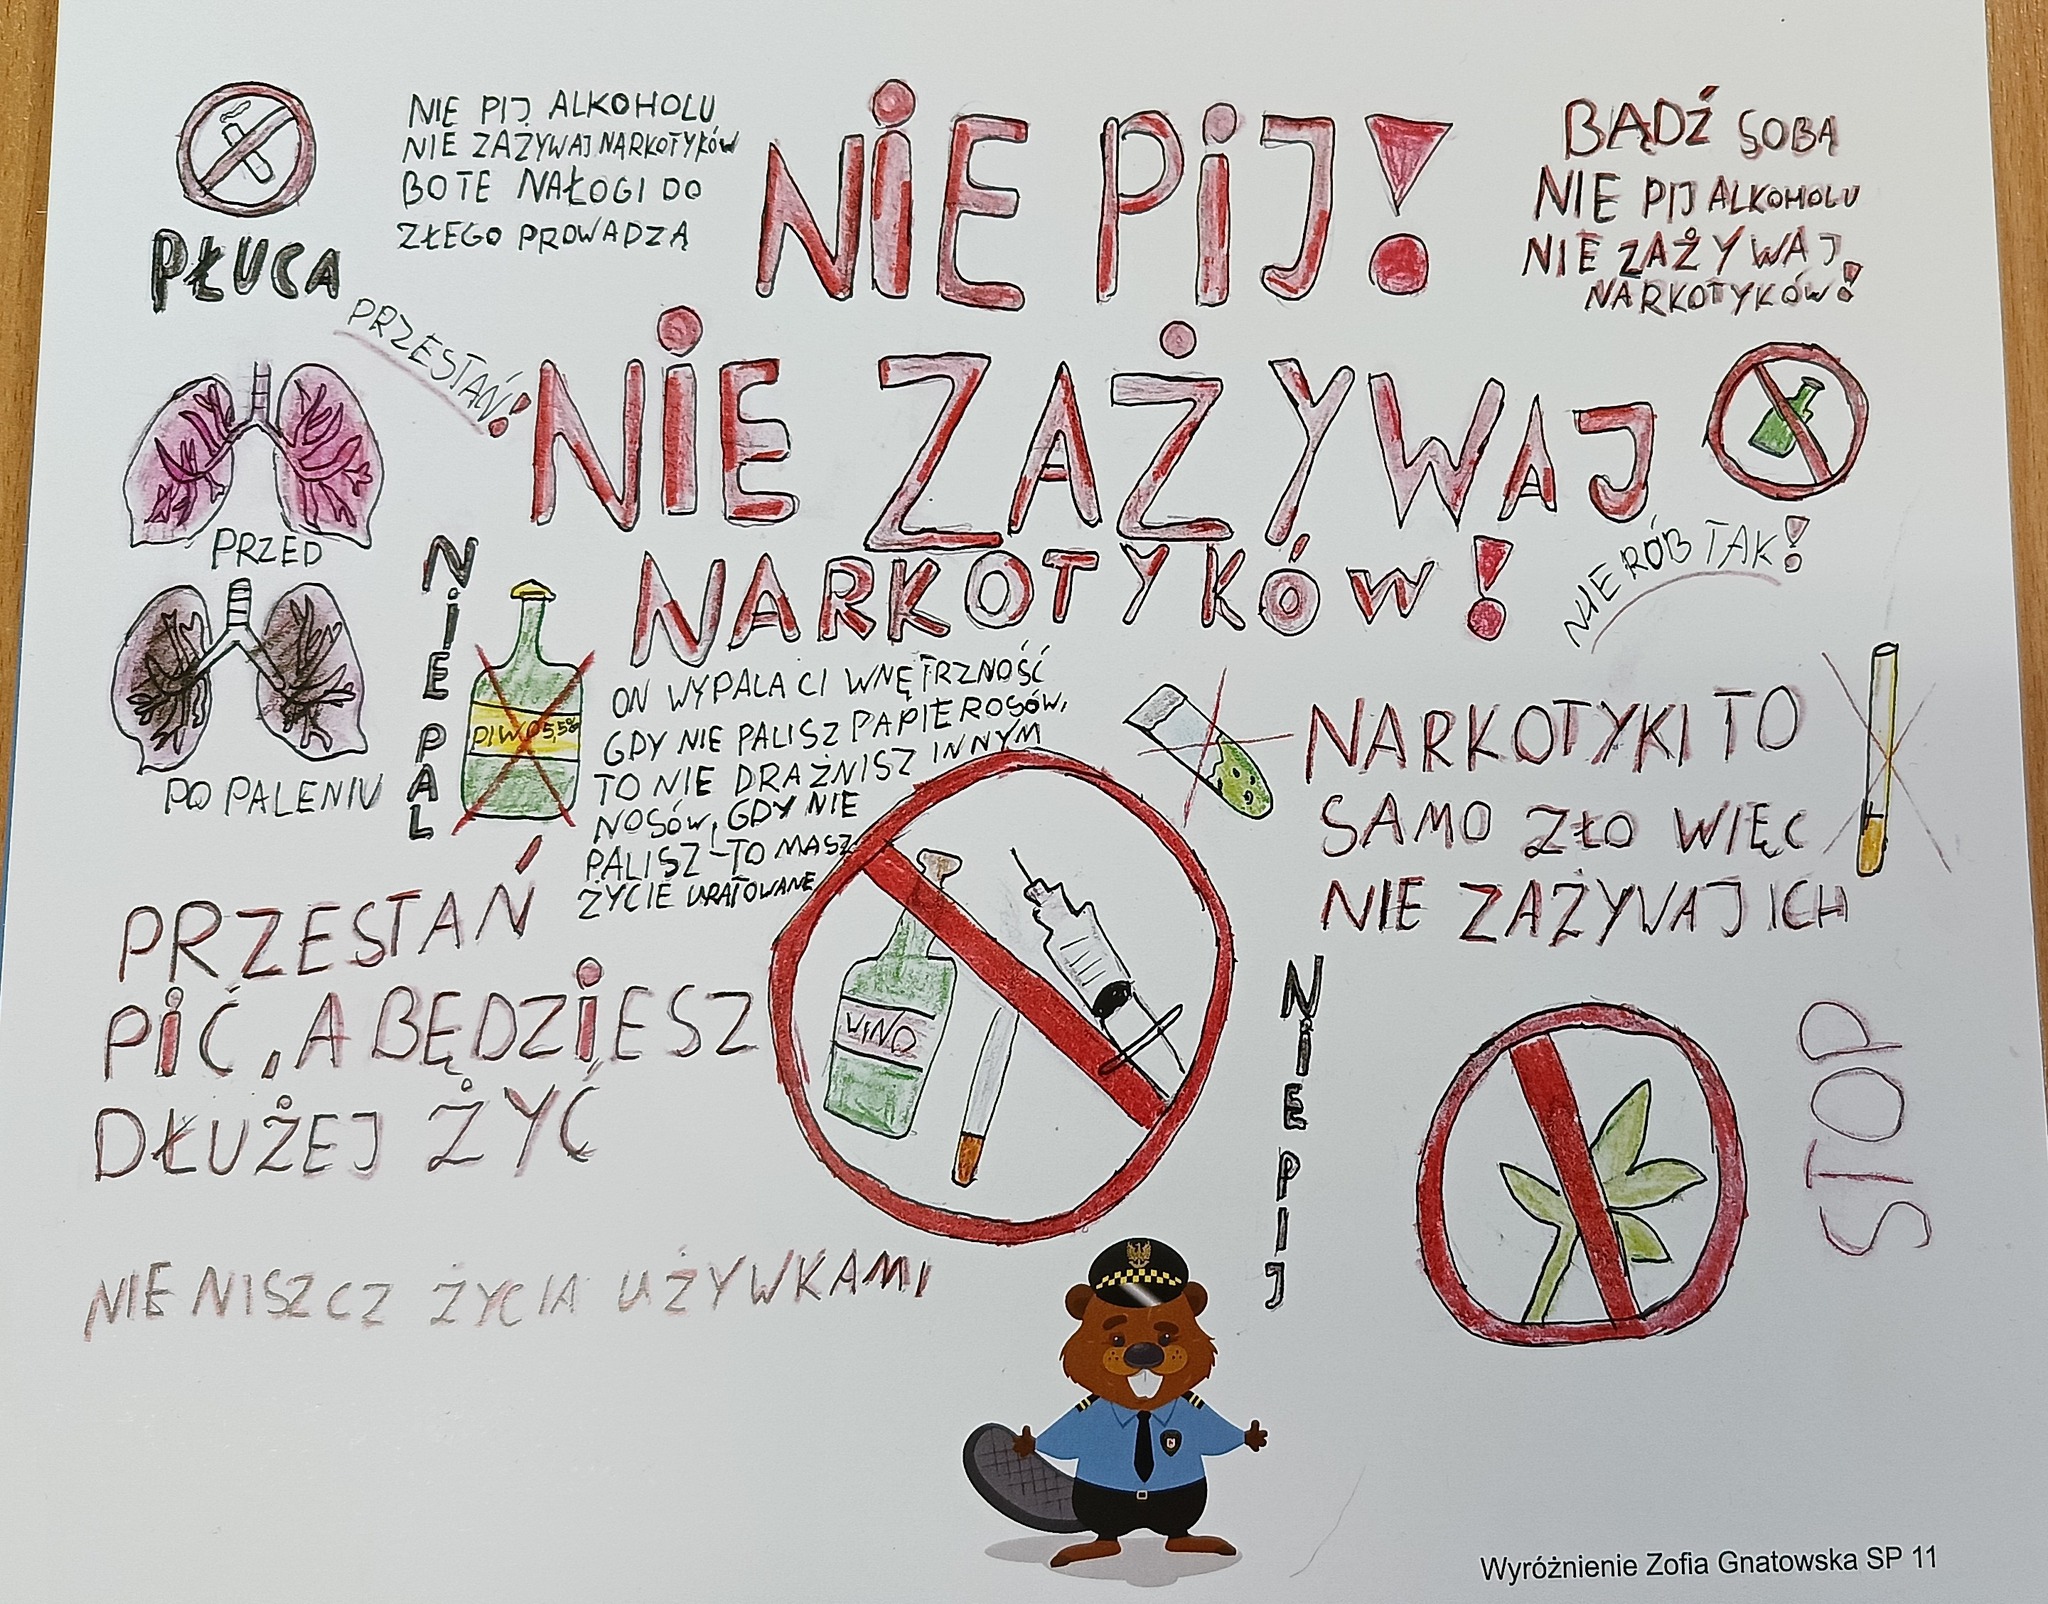 NIE PIJ ALKOHOLU
NIE ZAŻYWAJ NARKOTYKÓW
BO TE NAŁOGI DO
ZŁEGO PROWADZĄ
NIE PIJ!
BĄDŹ SOBĄ
NIE PIJ ALKOHOLU
NIE ZAŻYWAJ
NARKOTYKÓW!
PŁUCA
PRZESTAŃ!
NIE ZAŻYWAJ
NARKOTYKÓW!
NIE RÓB TAK!
PRZED
PO PALENIU
NIE PAL
PIWO 5,5%
ON WYPALA CI WNĘTRZNOŚĆ
GDY NIE PALISZ PAPIEROSÓW,
TO NIE DRAŻNISZ INNYM
NOSÓW, GDY NIE
PALISZ-TO MASZ
ŻYCIE URATOWANE
NARKOTYKI TO
SAMO ZŁO WIĘC
NIE ZAŻYWAJ ICH
PRZESTAŃ
PIĆ, A BĘDZIESZ
DŁUŻEJ ŻYĆ
WINO
NIE PIJ
STOP
NIE NISZCZ ŻYCIA UŻYWKAMI
Wyróżnienie Zofia Gnatowska SP 11